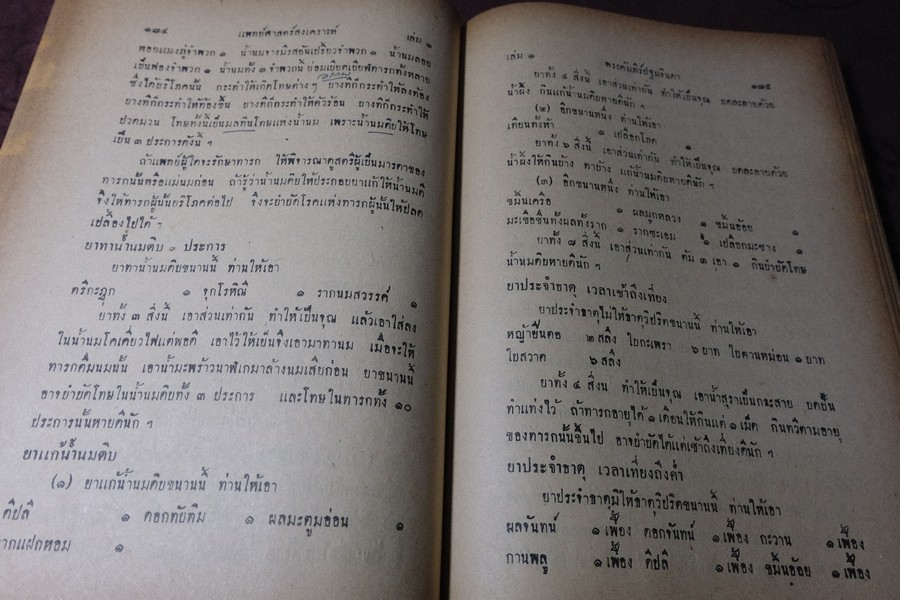 ๑๘๔ แพทย์ศาสตร์สงเคราะห์ เล่ม ๑
หอยแมงภู่จำพวก ๑ น้ำนมจางมีรสอันเปรี้ยวจำพวก ๑ น้ำนมลอย
เป็นฟองจำพวก ๑ น้ำนมทั้ง ๓ จำพวกนี้ ย่อมเบียดเบียฬทารกทั้งหลาย
ซึ่งได้บริโภคนั้น กระทำให้เกิดโทษต่างๆ บางทีก็กระทำให้ลงท้อง
บางทีก็กระทำให้ท้องขึ้น บางทีก็กระทำให้ตัวร้อน บางทีก็กระทำให้
ปวดมวน โทษทั้งนี้เป็นมลทินโทษแห่งน้ำนม เพราะน้ำนมดิบให้โทษ
เป็น ๓ ประการดังนี้ ฯ
ถ้าแพทย์ผู้ใดจะรักษาทารก ให้พิจารณาดูสตรีผู้เป็นมารดาของ
ทารกนั้นหรือแม่นมก่อน ถ้ารู้ว่าน้ำนมดิบให้ประกอบยาแก้ให้น้ำนมดี
จึงให้ทารกผู้นั้นบริโภคต่อไป จึงจะบำบัดโรคแห่งทารกผู้นั้นให้ปลด
เปลื้องไปได้ ฯ
ยาทาน้ำนมดิบ ๓ ประการ
ยาทาน้ำนมดิบขนานนี้ ท่านให้เอา
ตรีกะฏุก ๑ จุกโรหิณี ๑ รากนมสวรรค์ ๑
ยาทั้ง ๓ สิ่งนี้ เอาส่วนเท่ากัน ทำให้เป็นจุณ แล้วเอาใส่ลง
ในน้ำนมโคเคี่ยวไฟแต่พอดี เอาไว้ให้เย็นจึงเอามาทานม เมื่อจะให้
ทารกดื่มนมนั้น เอาน้ำมะพร้าวนาฬิเกมาล้างนมเสียก่อน ยาขนานนี้
อาจบำบัดโทษในน้ำนมดิบทั้ง ๓ ประการ และโทษในทารกทั้ง ๑๐
ประการนั้นหายดีนัก ฯ
ยาแก้น้ำนมดิบ
(๑) ยาแก้น้ำนมดิบขนานนี้ ท่านให้เอา
ดีปลี ๑ ดอกทับทิม ๑ ผลมะตูมอ่อน ๑
รากแฝกหอม ๑
เล่ม ๑ พระคัมภีร์ปฐมจินดา ๑๘๕
ยาทั้ง ๔ สิ่งนี้ เอาส่วนเท่ากัน ทำให้เป็นจุณ บดละลายด้วย
น้ำผึ้ง กินแก้น้ำนมดิบหายดีนัก ฯ
(๒) อีกขนานหนึ่ง ท่านให้เอา
เทียนทั้งห้า ๑ เปลือกโลด ๑
ยาทั้ง ๖ สิ่งนี้ เอาส่วนเท่ากัน ทำให้เป็นจุณ บดละลายด้วย
น้ำผึ้งให้กินบ้าง ทาบ้าง แก้น้ำนมดิบหายดีนัก ฯ
(๓) อีกขนานหนึ่ง ท่านให้เอา
ขมิ้นเครือ ๑ ผลมูกหลวง ๑ ขมิ้นอ้อย ๑
มะเขือขื่นทั้งผลทั้งราก ๑ รากชะเอม ๑ เปลือกมะซาง ๑
ยาทั้ง ๗ สิ่งนี้ เอาส่วนเท่ากัน ต้ม ๓ เอา ๑ กินบำบัดโทษ
น้ำนมดิบหายดีนัก ฯ
ยาประจำธาตุ เวลาเช้าถึงเที่ยง
ยาประจำธาตุไม่ให้ธาตุวิปริตขนานนี้ ท่านให้เอา
หญ้ายืนคอ ๒ สลึง ใบกะเพรา ๖ บาท ใบตานหม่อน ๑ บาท
ใบสวาด ๖ สลึง
ยาทั้ง ๔ สิ่งนี้ ทำให้เป็นจุณ เอาน้ำสุราเป็นกระสาย บดปั้น
ทำแท่งไว้ ถ้าทารกอายุได้ ๑ เดือนให้กินแต่ ๑ เม็ด กินทวีตามอายุ
ของทารกนั้นขึ้นไป อาจบำบัดได้แต่เช้าถึงเที่ยงดีนัก ฯ
ยาประจำธาตุ เวลาเที่ยงถึงค่ำ
ยาประจำธาตุมิให้ธาตุวิปริตขนานนี้ ท่านให้เอา
ผลจันทน์ ๑ เฟื้อง ดอกจันทน์ ๑ เฟื้อง กะวาน ๑ เฟื้อง
กานพลู ๑ เฟื้อง ดีปลี ๑ เฟื้อง ขมิ้นอ้อย ๑ เฟื้อง